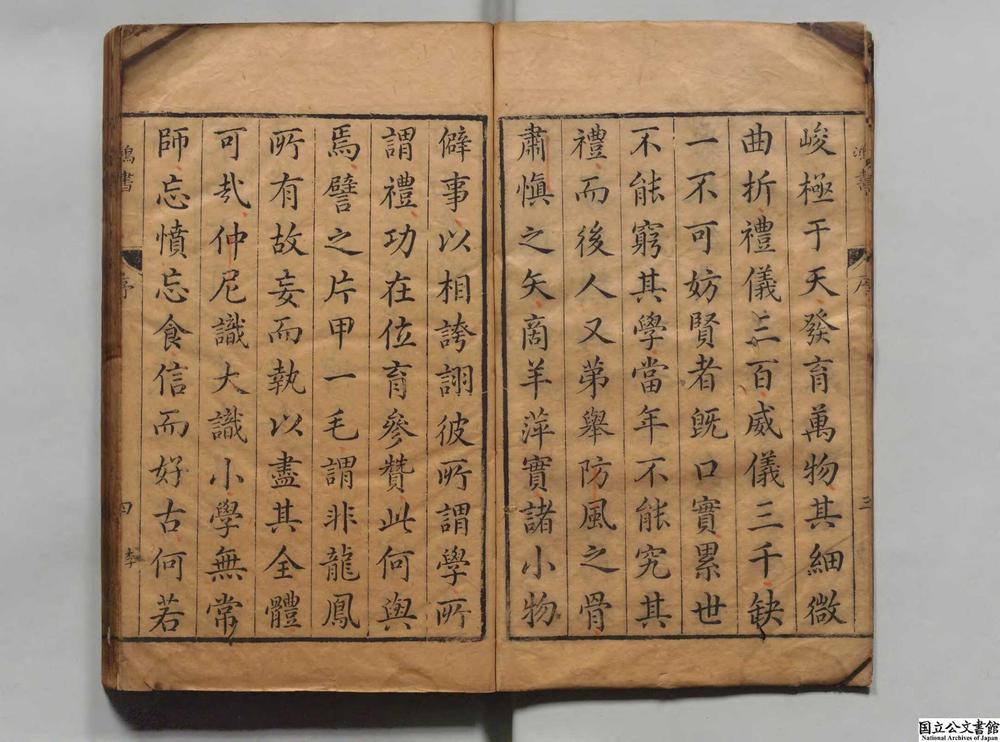 峻極于天發育萬物其細微
曲折禮儀三百威儀三千缺
一不可妨賢者既口實累世
不能窮其學當年不能究其
禮而後人又第舉防風之骨
肅慎之矢商羊萍實諸小物
僻事以相誇詡彼所謂學所
謂禮功在位育參贊此何與
焉譬之片甲一毛謂非龍鳳
所有故妄而執以盡其全體
可哉仲尼識大識小學無常
師忘憤忘食信而好古何若
鴻書
序
三
鴻書
序
四
李
国立公文書館
National Archives of Japan